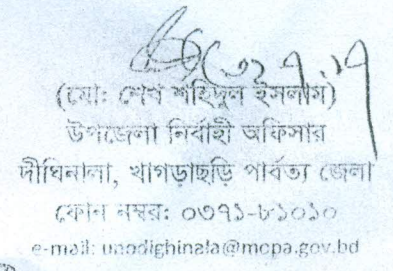 (মোঃ শেখ শহিদুল ইসলাম)
উপজেলা নির্বাহী অফিসার
দীঘিনালা, খাগড়াছড়ি পার্বত্য জেলা
ফোন নম্বর: ০৩৭১-৮১০১০
e-mail: unodighinala@mopa.gov.bd